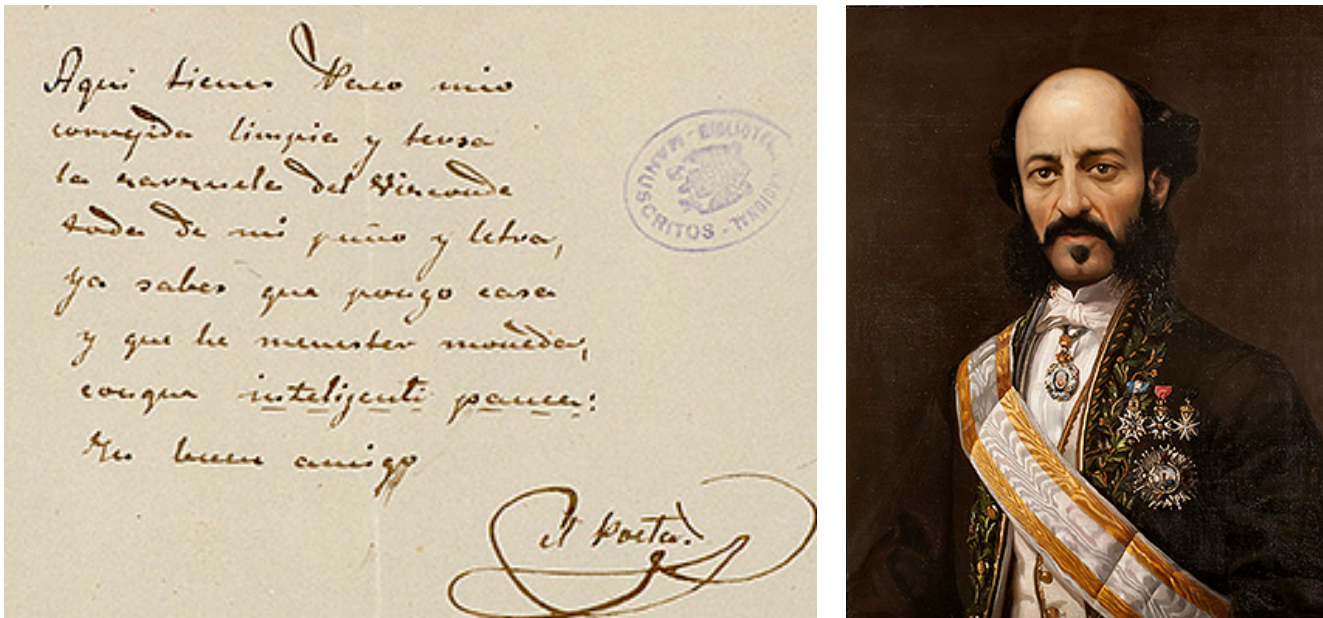 Aqui tienes Paco mio
corregida limpia y tersa
la zarzuela del Vizconde
toda de mi puño y letra,
ya sabes que pongo casa
y que he menester moneda,
conque inteligenti pauca:
Tu buen amigo
el Poeta.
MANUSCRITOS - BIBLIOTECA NACIONAL